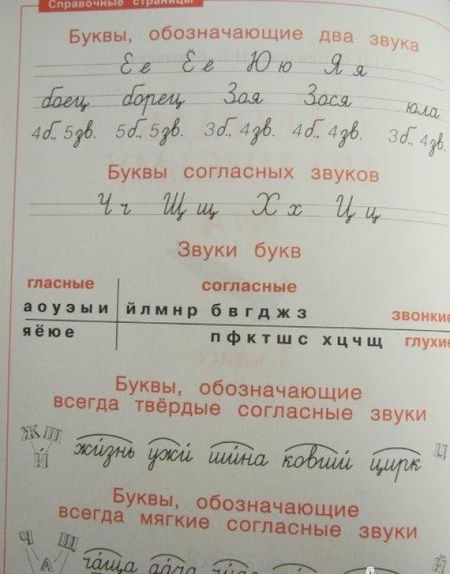 Справочные страницы
Буквы, обозначающие два звука
Е е Ё ё Ю ю Я я
боец борец Зоя Зося юла
4б., 5зв. 5б., 5зв. 3б., 4зв. 4б., 4зв. 3б., 4зв.
Буквы согласных звуков
Ч ч Щ щ Х х Ц ц
Звуки букв
гласные согласные
а о у э ы и й л м н р б в г д ж з звонкие
я ё ю е п ф к т ш с х ц ч щ глухие
Буквы, обозначающие
всегда твёрдые согласные звуки
Ж Ш И жизнь ужи шина ковши цирк Ц
Буквы, обозначающие
всегда мягкие согласные звуки
Ч Щ А чаща Й